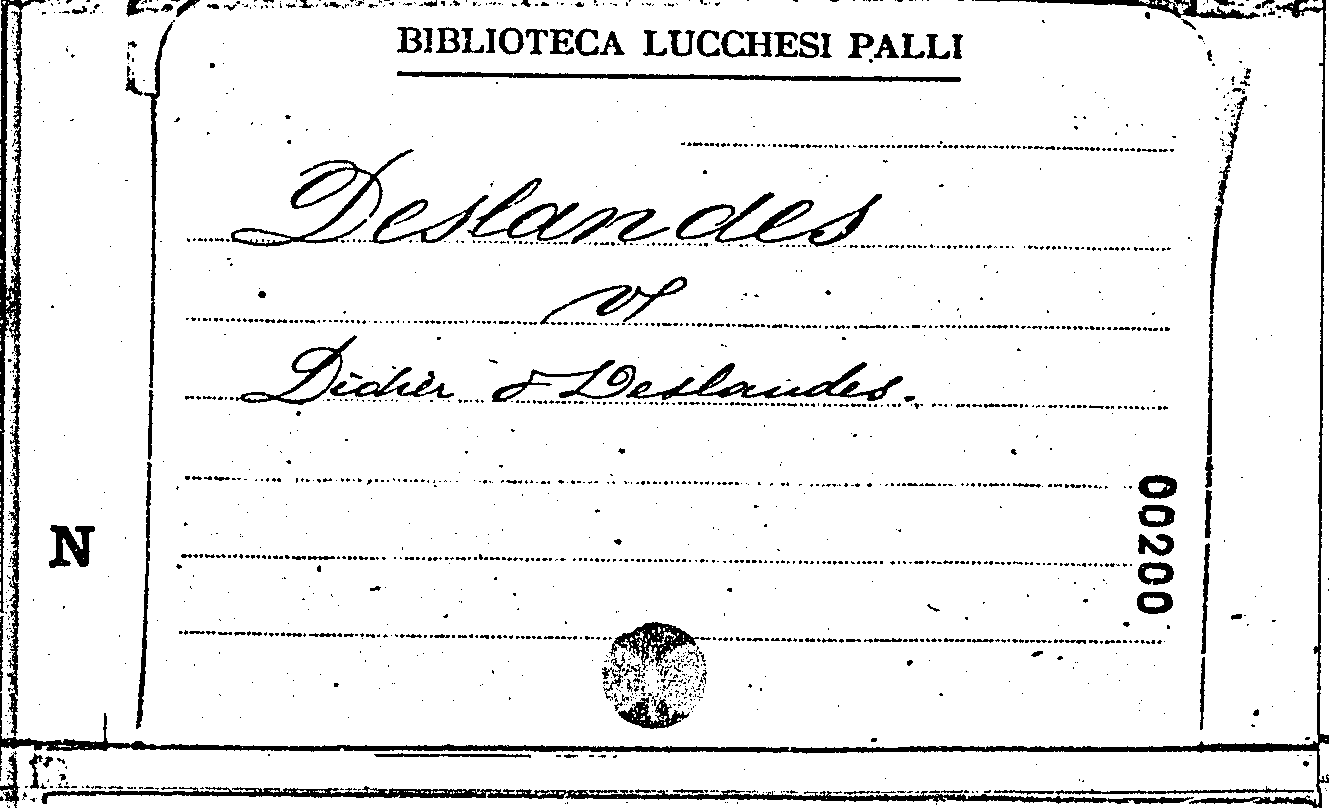 BIBLIOTECA LUCCHESI PALLI
Deslandes
vf
Didier & Deslandes.
00200
N